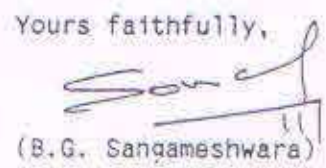 Yours faithfully,
(B.G. Sangameshwara)